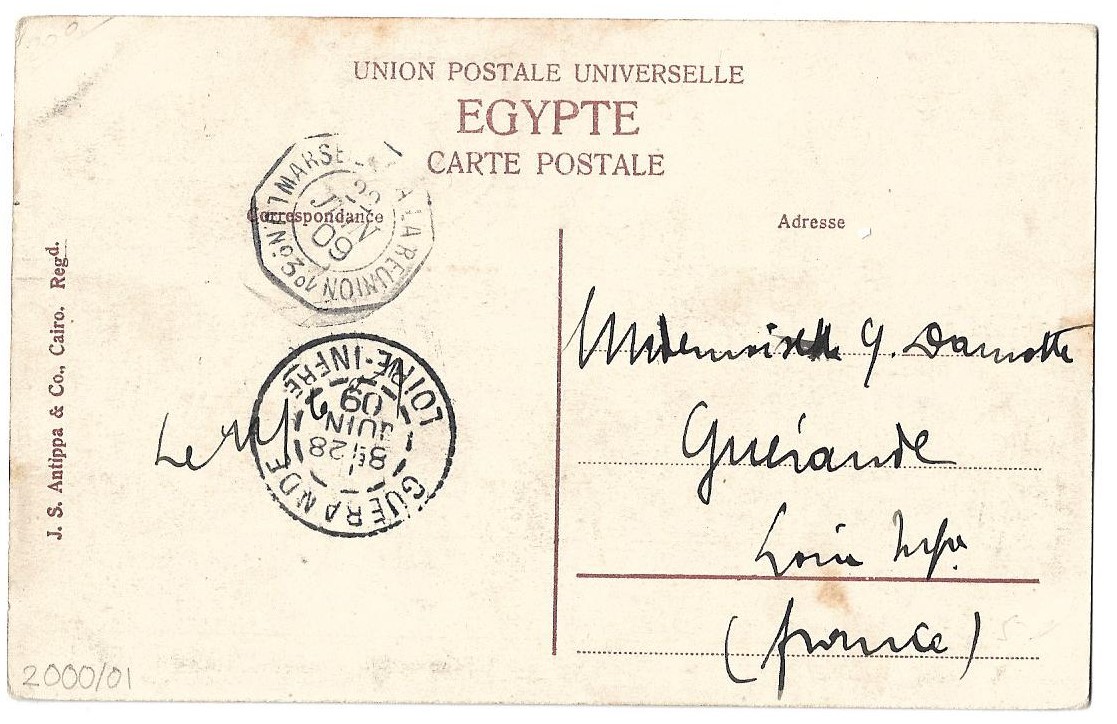 UNION POSTALE UNIVERSELLE
EGYPTE
CARTE POSTALE
Correspondance
Adresse
LA REUNION
JUIN
09
GUÉRANDE
LOIRE-INFRE
28
JUIN
09
J. S. Antippa & Co., Cairo. Regd.
Mademoiselle G. Damotte
Guérande
Loire Infre
(france)
Le
2000/01